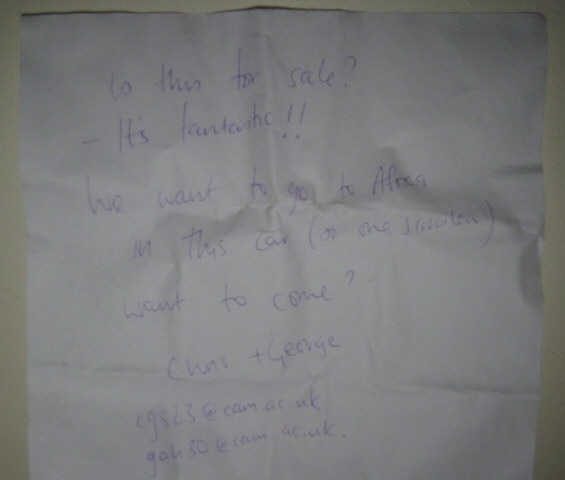 Is this for sale?
- It's fantastic!!
We want to go to Africa
in this car (or one similar)
want to come?
Chris + George
cgs23@cam.ac.uk
gah30@cam.ac.uk.